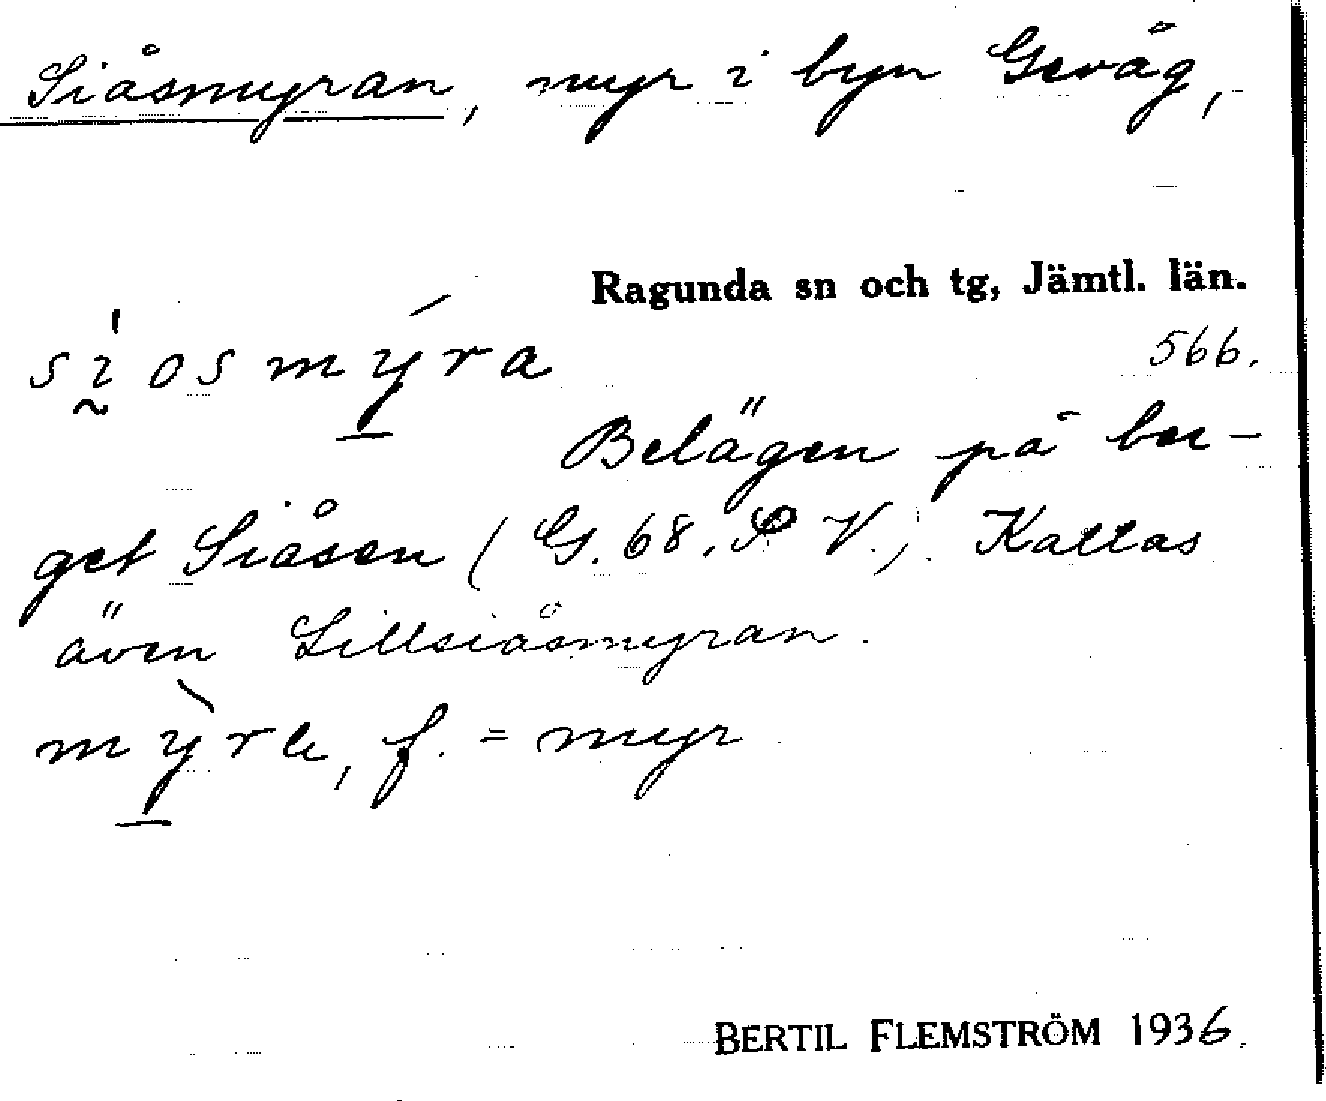 Siåsmyran, myr i byn Gevåg,
Ragunda sn och tg, Jämtl. län.
siosmýra
566.
Belägen på ber-
get Siåsen (G. 68. S V.). Kallas
även Lillsiåsmyran.
mỳrɐ, f. = myr
BERTIL FLEMSTRÖM 1936.